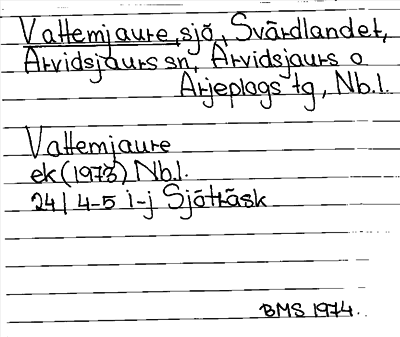 Vattemjaure, sjö, Svärdlandet,
Arvidsjaurs sn, Arvidsjaurs o
Arjeplogs tg, Nb.l.
Vattemjaure
ek (1973) Nb.l.
24 I 4-5 i-j Sjöträsk
BMS 1974.